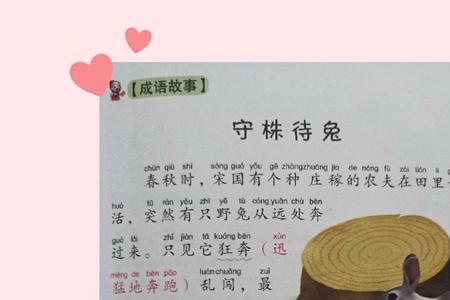 【成语故事】
守株待兔
chūn qiū shí sòng guó yǒu gè zhòngzhuāng jia de nóng fū zài tián lǐ
春秋时，宋国有个种 庄稼的农夫在田里
huó tū rán yǒu zhī yě tù cóng yuǎn chù bēn
活，突然有只野兔从远处奔
guò lái zhǐ jiàn tā kuáng bēn xùn
过来。只见它狂奔（迅
měng de bēn pǎo luàn chuǎng zuì
猛地奔跑）乱闯，最